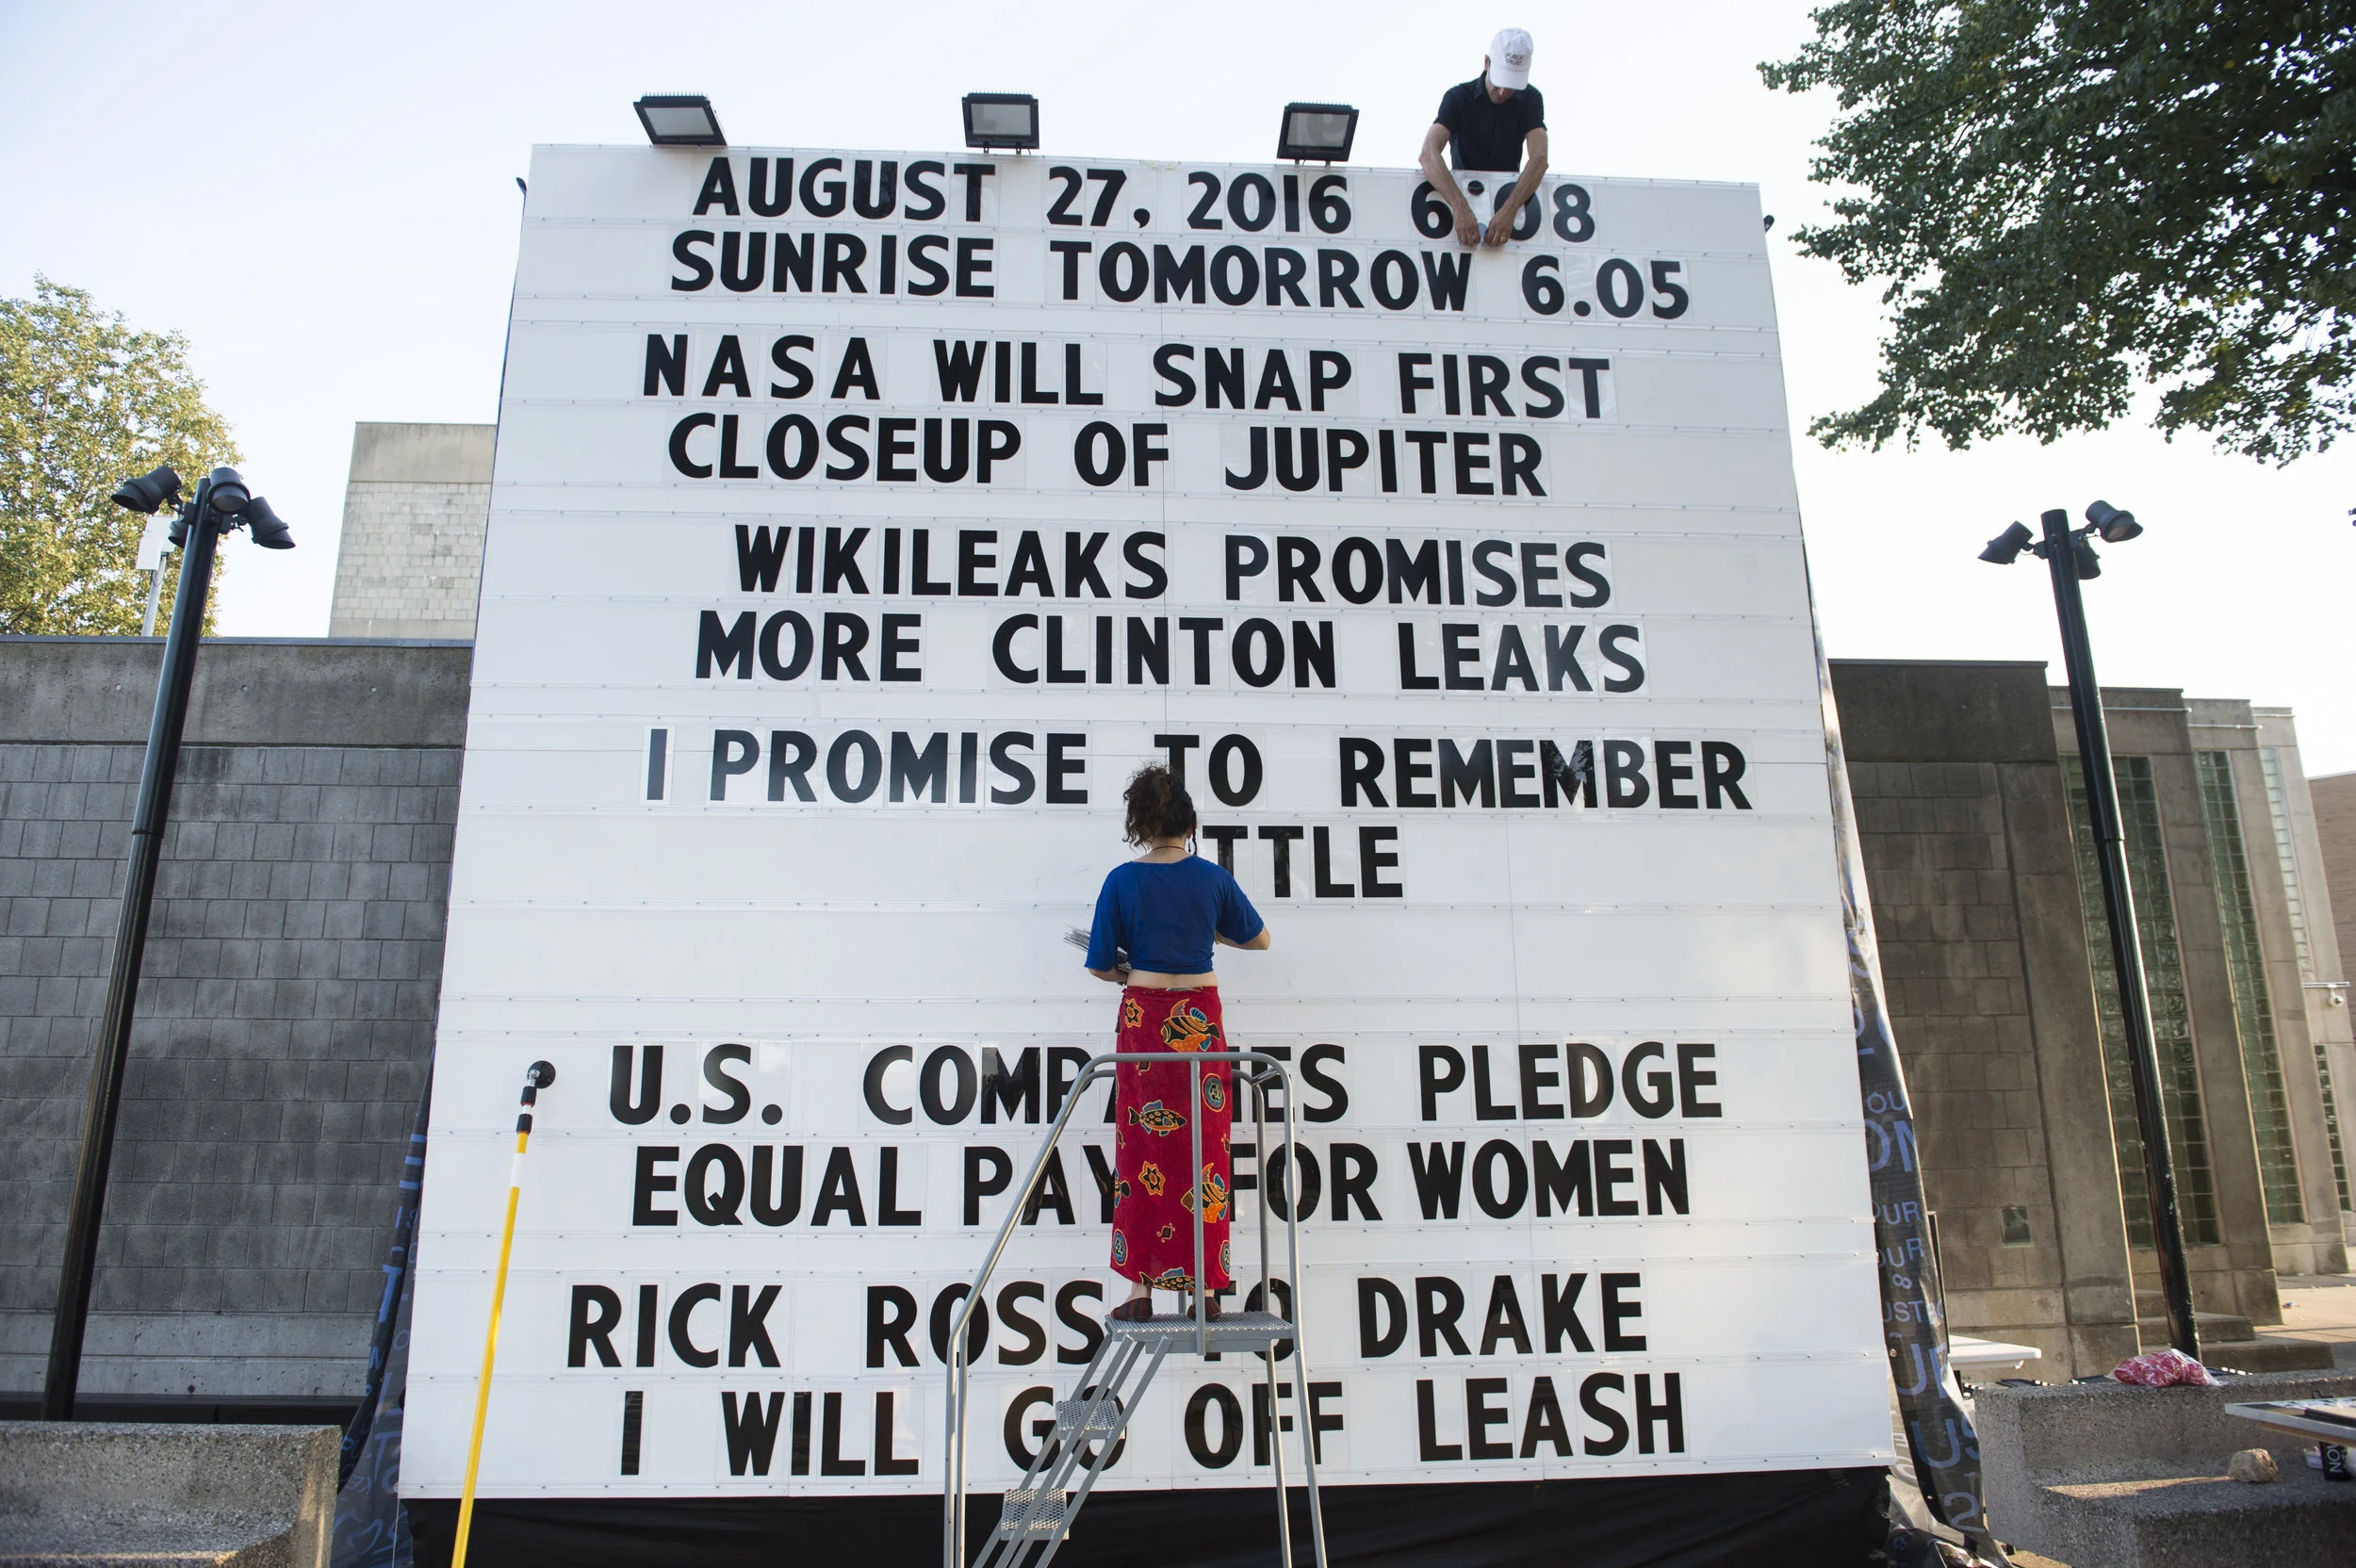 PUBLIC
TRUST
AUGUST 27, 2016 6:08
SUNRISE TOMORROW 6.05
NASA WILL SNAP FIRST
CLOSEUP OF JUPITER
WIKILEAKS PROMISES
MORE CLINTON LEAKS
I PROMISE TO REMEMBER
TTLE
U.S. COMPANIES PLEDGE
EQUAL PAY FOR WOMEN
RICK ROSS TO DRAKE
I WILL GO OFF LEASH